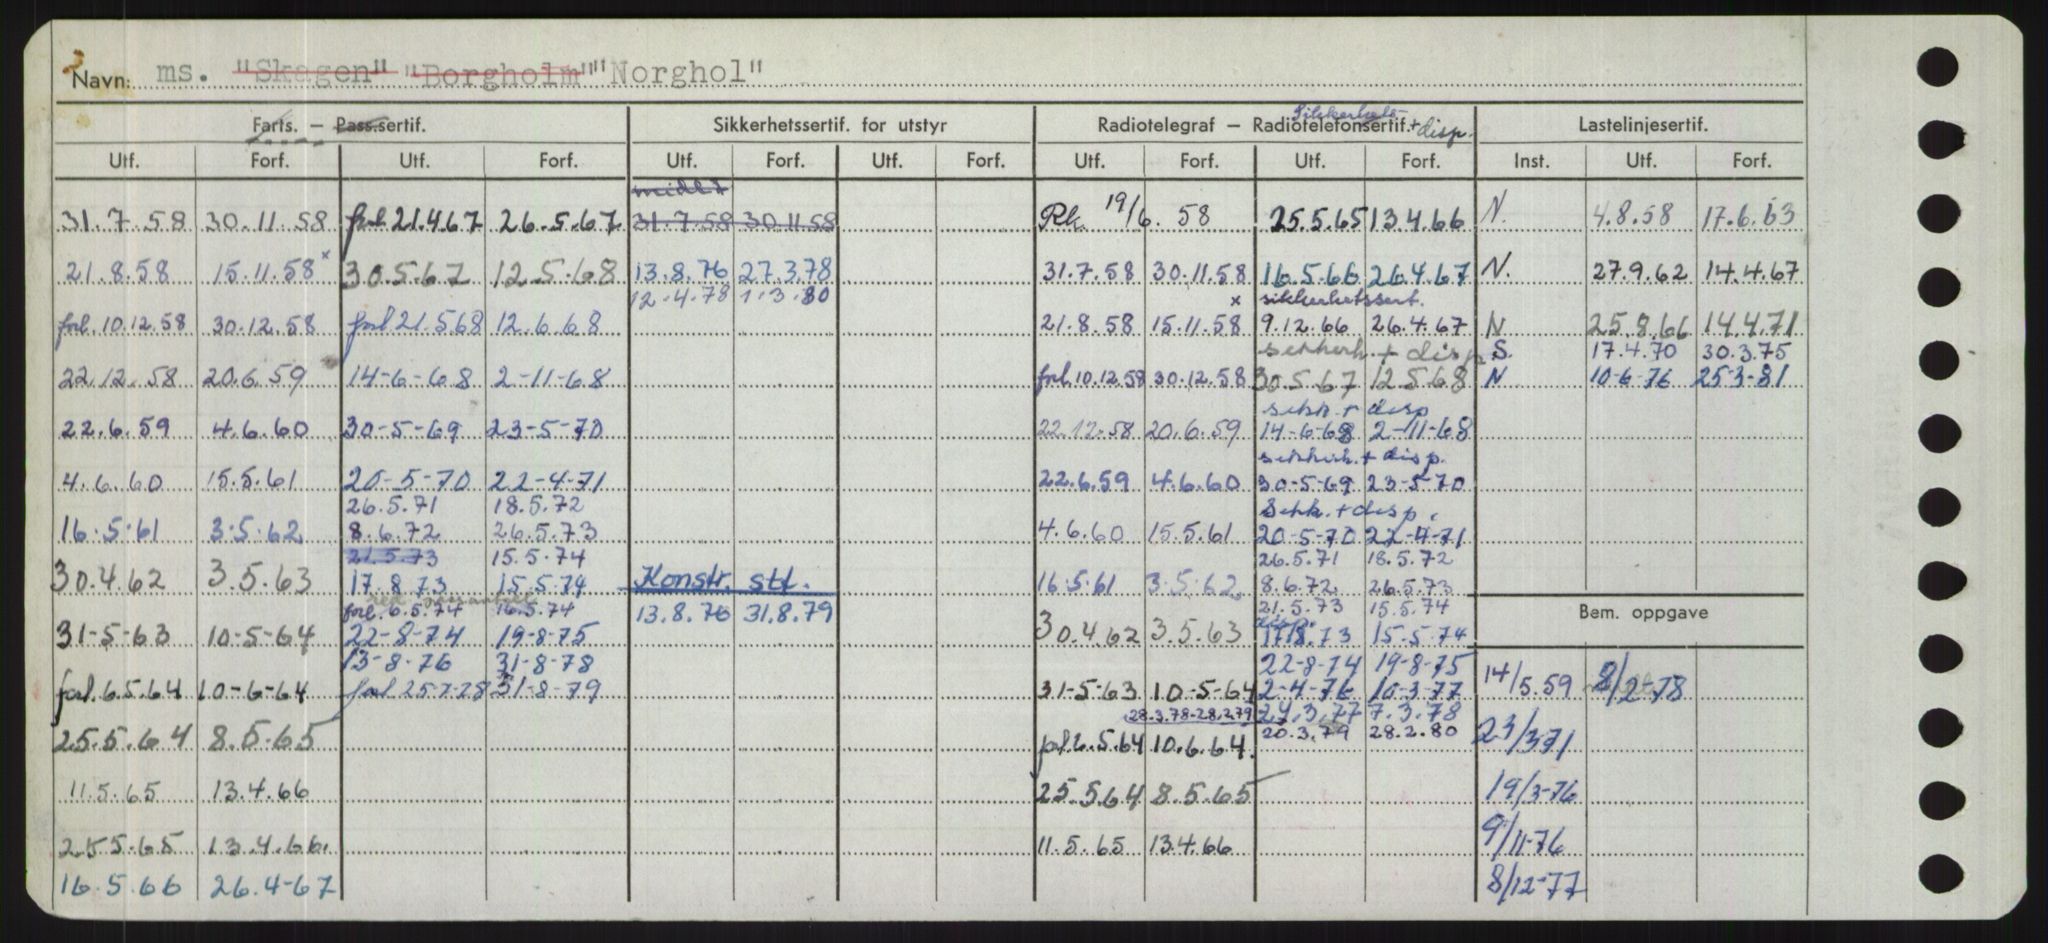 Navn: ms. "Skagen" "Borgholm" "Norghol"
Farts. — Pass.sertif. Sikkerhetssertif. for utstyr Radiotelegraf — Radiotelefonsertif. + disp. Lastelinjesertif.
Sikkerhets-
Utf. Forf. Utf. Forf. Utf. Forf. Utf. Forf. Utf. Forf. Utf. Forf. Inst. Utf. Forf.
midl.
31.7.58 30.11.58 forl 21.4.67 26.5.67 31.7.58 30.11.58 Rk. 19/6. 58 25.5.65 13.4.66 N. 4.8.58 17.6.63
21.8.58 15.11.58 x 30.5.67 12.5.68 13.8.76 27.3.78 31.7.58 30.11.58 16.5.66 26.4.67 N. 27.9.62 14.4.67
12.4.78 1.3.80 x sikkerhetssert.
forl. 10.12.58 30.12.58 forl 21.5.68 12.6.68 21.8.58 15.11.58 9.12.66 26.4.67 N 25.8.66 14.4.71
sikkerh. + disp. S. 17.4.70 30.3.75
22.12.58 20.6.59 14-6-68 2-11-68 forl. 10.12.58 30.12.58 30.5.67 12.5.68 N 10-6-76 25-3-81
sikk. + disp
22.6.59 4.6.60 30-5-69 23-5-70 22.12.58 20.6.59 14-6-68 2-11-68
sikkerh. + disp.
4.6.60 15.5.61 20-5-70 22-4-71 22.6.59 4.6.60 30-5-69 23-5-70
26.5.71 18.5.72 Sikk. + disp.
16.5.61 3.5.62 8.6.72 26.5.73 4.6.60 15.5.61 20-5-70 22-4-71
21.5.73 15.5.74 26.5.71 18.5.72
30.4.62 3.5.63 17.8.73 15.5.74 Konstr. stt. 16.5.61 3.5.62 8.6.72 26.5.73
red. passantall
forl. 6.5.74 16.5.74 13.8.76 31.8.79 21.5.73 15.5.74 Bem. oppgave
disp.
31-5-63 10-5-64 22-8-74 19-8-75 30.4.62 3.5.63 17.8.73 15.5.74
13-8-76 31-8-78 22-8-74 19-8-75
forl. 6.5.64 10-6-64 forl 25-7-78 31-8-79 31-5-63 10-5-64 2-4-76 10-3-77 14/5.59 8/2-78
28.3.78-28.2.79 24.3.77 7.3.78
25.5.64 8.5.65 forl. 6.5.64 10.6.64. 20.3.79 28.2.80 23/3-71
11.5.65 13.4.66 25.5.64 8.5.65 19/3-76
25.5.65 13.4.66. 11.5.65 13.4.66 9/11-76
16.5.66 26.4-67 8/12-77